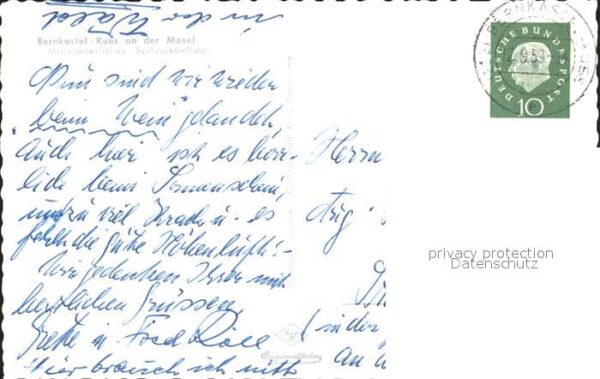 in der Wald
Bernkastel-Kues an der Mosel
Mittelalterliches Spitzgiebelhaus
Nun sind wir wieder
beim "Wein" gelandet,
auch hier ist es herr-
lich beim Sonnenschein,
nur zu viel Krach u. es
fehlt die gute Höhenluft!
Wir gedenken Ihrer mit
herzlichen Grüssen
Grete u. Fred
Hier brauch ich nitt
BERNKASTEL-KUES
4.9.59
DEUTSCHE BUNDESPOST
10
Herrn
Aug
in der
an
privacy protection
Datenschutz